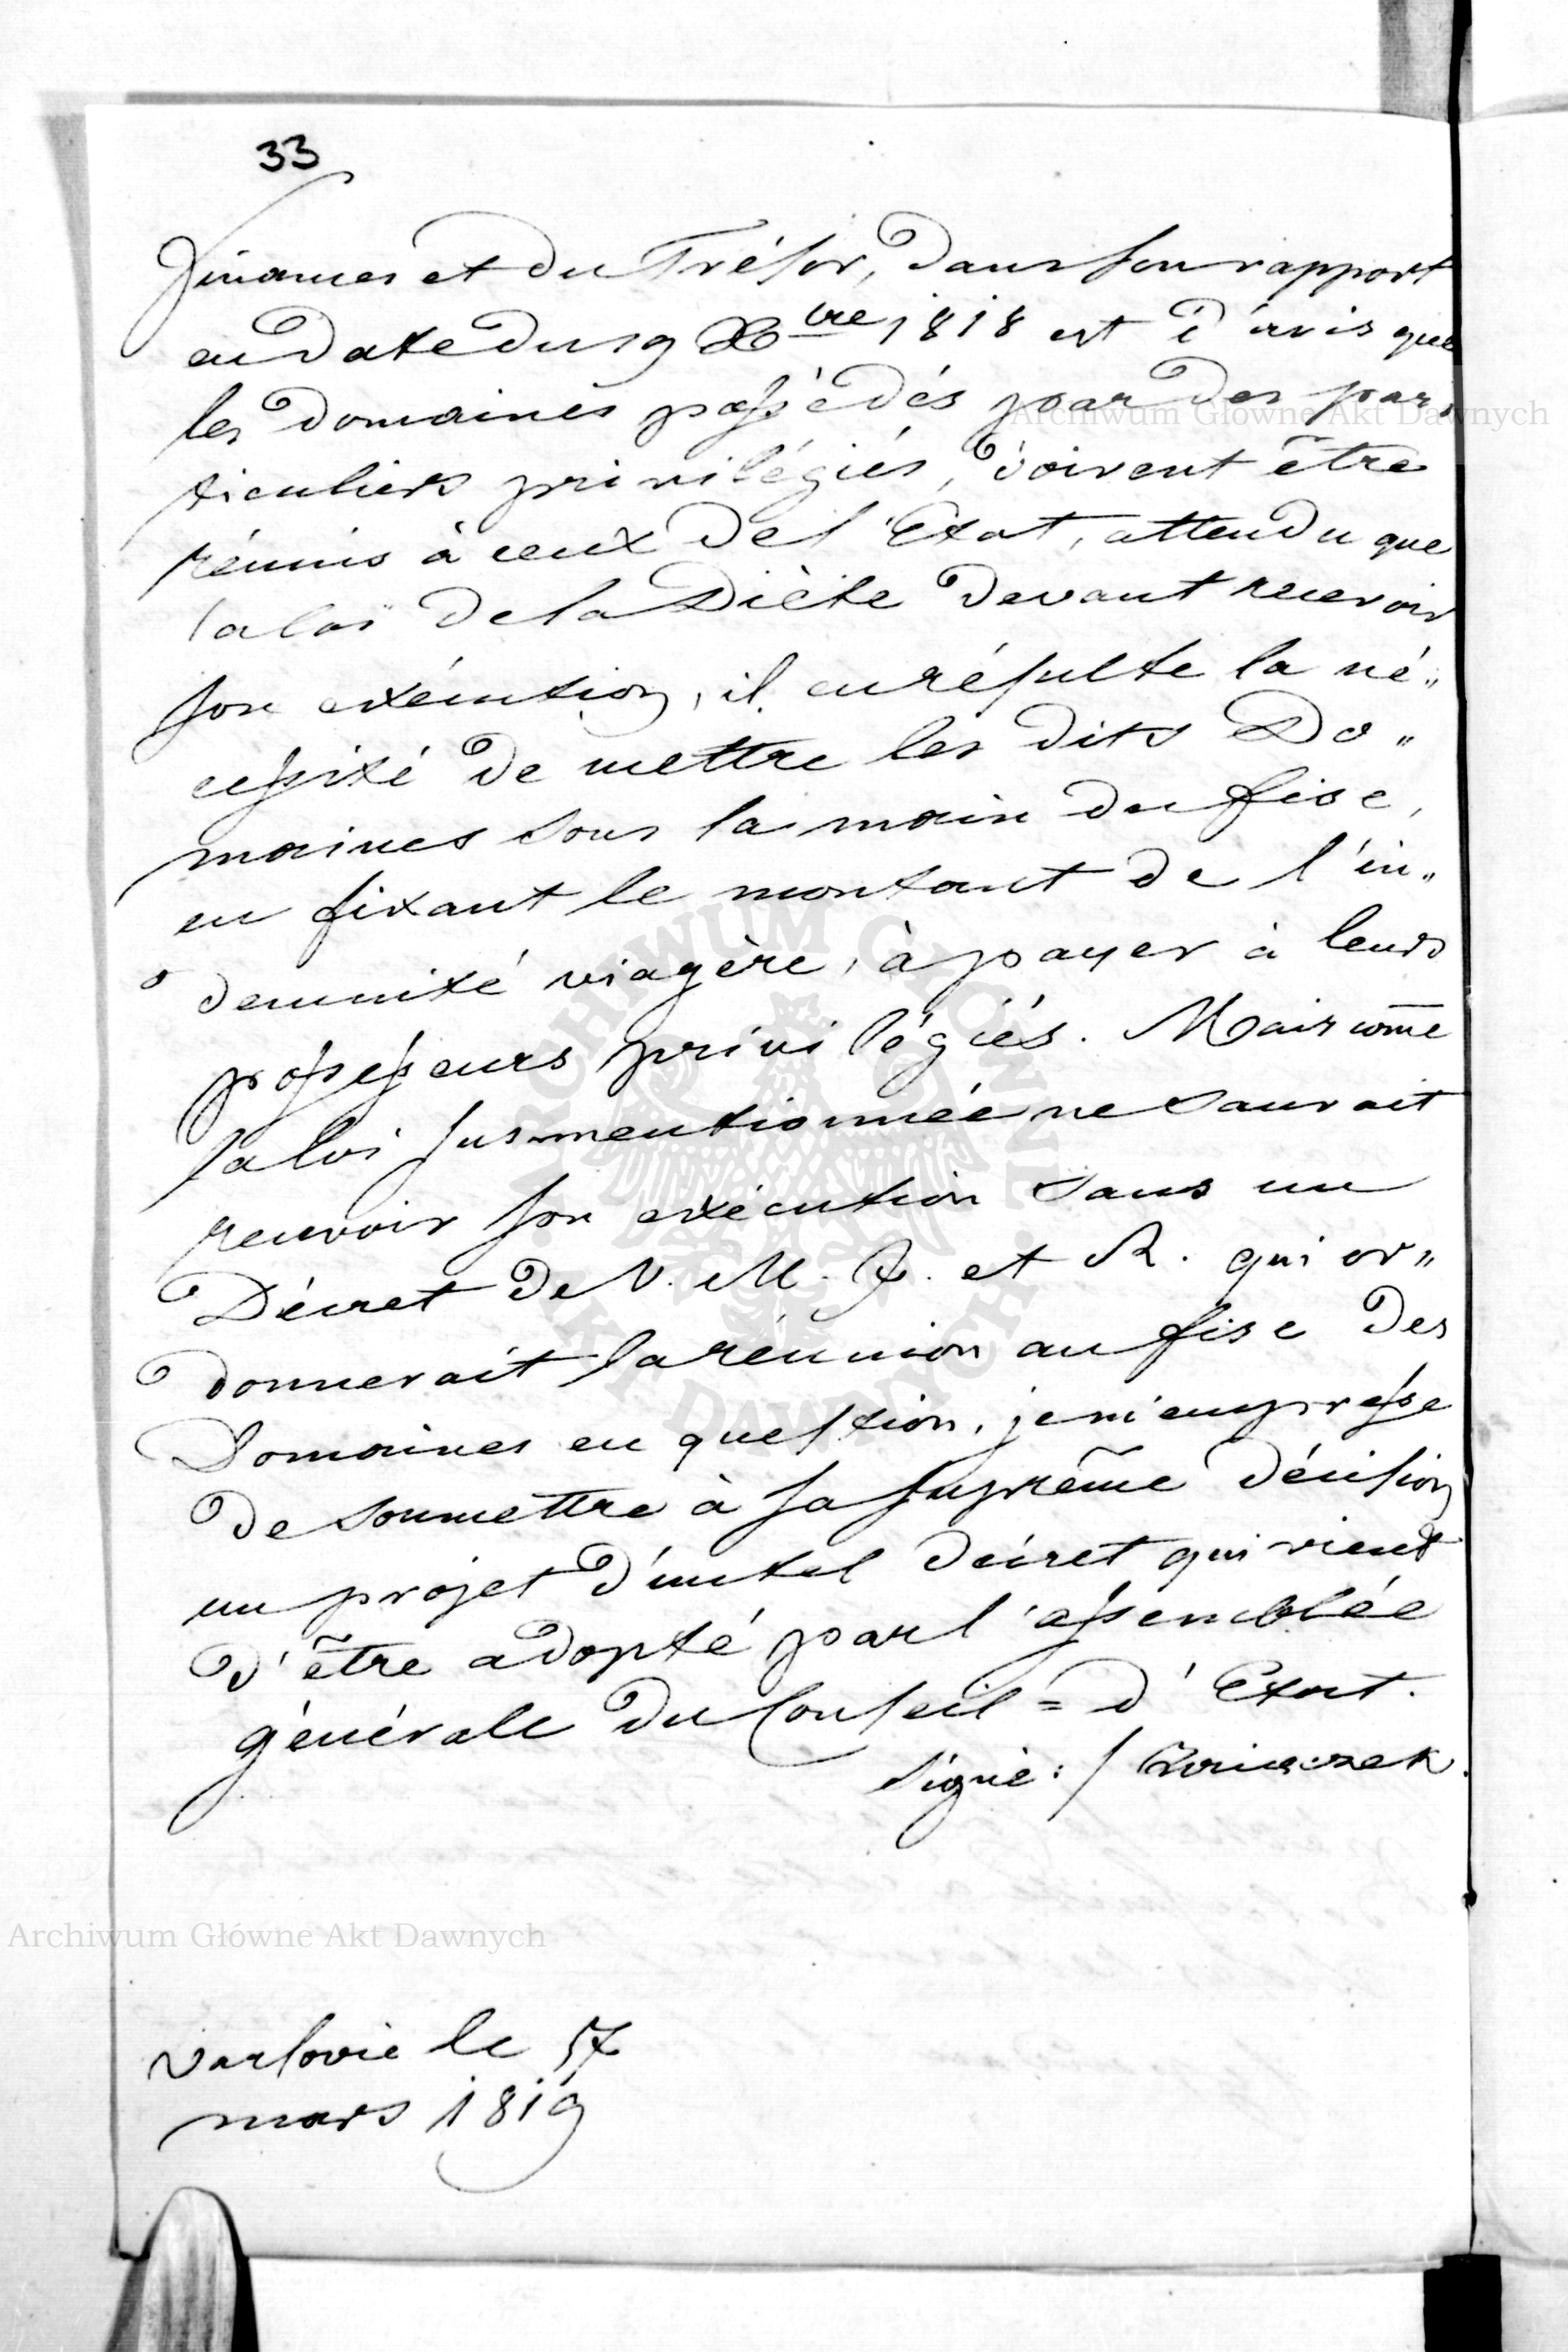 33
Finances et du Trésor, dans son rapport
en date du 19 Xbre 1818 est d'avis que
les Domaines possédés par des par„
ticuliers privilégiés, doivent être
réunis à ceux de l'Etat, attendu que
la loi de la Diète devant recevoir
son exécution, il en résulte la né„
cessité de mettre les dits Do„
maines sous la main du fisc,
en fixant le montant de l'in„
demnité viagère, à payer à leurs
possesseurs privilégiés. Mais com̄e
la loi susmentionnée ne saurait
recevoir son exécution sans un
Décret de V. M. J. et R. qui or„
donnerait la réunion au fisc des
Domaines en question, je m'empresse
de soumettre à sa suprême décision
un projet d'un tel décret qui vient
d'être adopté par l'assemblée
générale du Conseil=d'Etat.
signé: / Zaiączek.
Varsovie le 17
mars 1819
Archiwum Główne Akt Dawnych
Archiwum Główne Akt Dawnych
ARCHIWUM GŁÓWNE AKT DAWNYCH